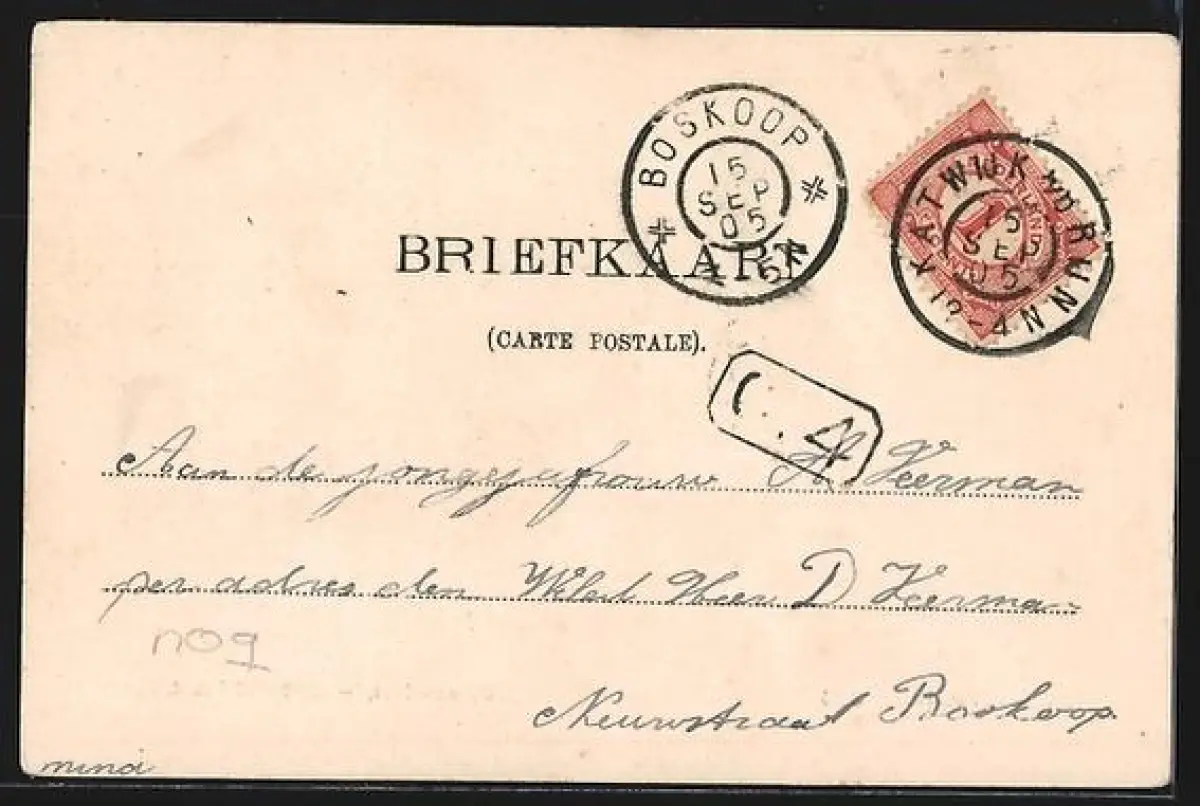 BOSKOOP
15
SEP
05
KATWIJK a/D RIJN
15
SEP
05
12-4N
1
BRIEFKAART
(CARTE POSTALE).
4
Aan de jongejufrouw A Veerman
per adres den Weled Heer D Veerman
Nieuwstraat Boskoop
mina